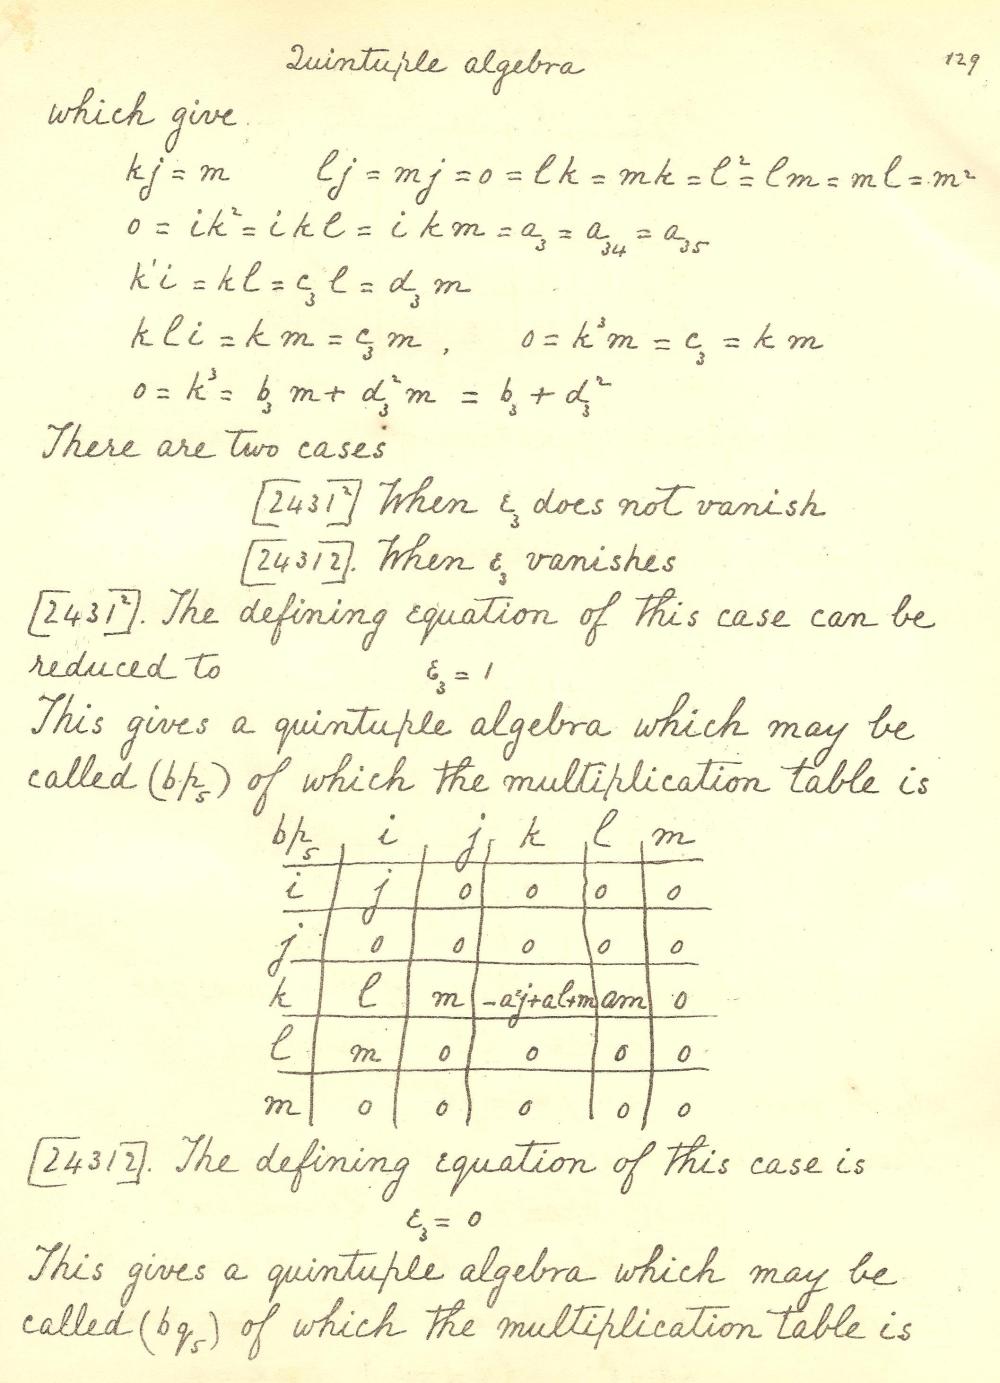 Quintuple algebra 129
which give
kj = m lj = mj = 0 = lk = mk = l² = lm = ml = m²
0 = ik² = ikl = ikm = a₃ = a₃₄ = a₃₅
k²i = kl = c₃l = d₃m
kli = km = c₃m, 0 = k³m = c₃ = km
0 = k³ = b₃m + d₃²m = b₃ + d₃²
There are two cases
[2431²] When ε₃ does not vanish
[24312]. When ε₃ vanishes
[2431²]. The defining equation of this case can be
reduced to ε₃ = 1
This gives a quintuple algebra which may be
called (bp₅) of which the multiplication table is
bp₅ i j k l m
i j 0 0 0 0
j 0 0 0 0 0
k l m -a²j+al+m am 0
l m 0 0 0 0
m 0 0 0 0 0
[24312]. The defining equation of this case is
ε₃ = 0
This gives a quintuple algebra which may be
called (bq₅) of which the multiplication table is